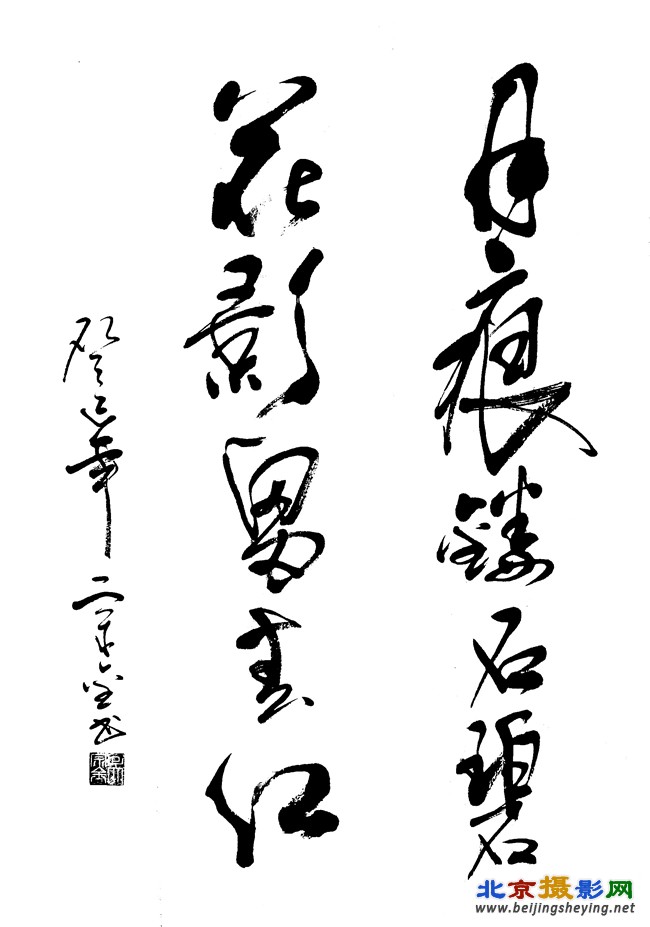 月痕鏤石碧
花影红
癸巳年
北京摄影网
www.beijingsheying.net